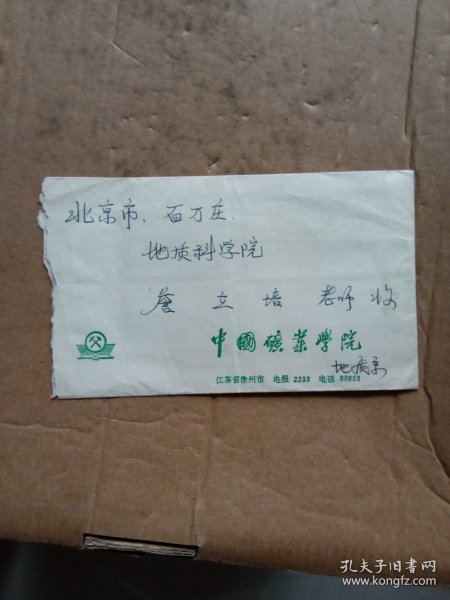 北京市、百万庄
地质科学院
詹 立 培 老师 收
中國礦業學院
地质系
江苏省徐州市 电报 2233 电话 88853
孔夫子旧书网
www.kongfz.com